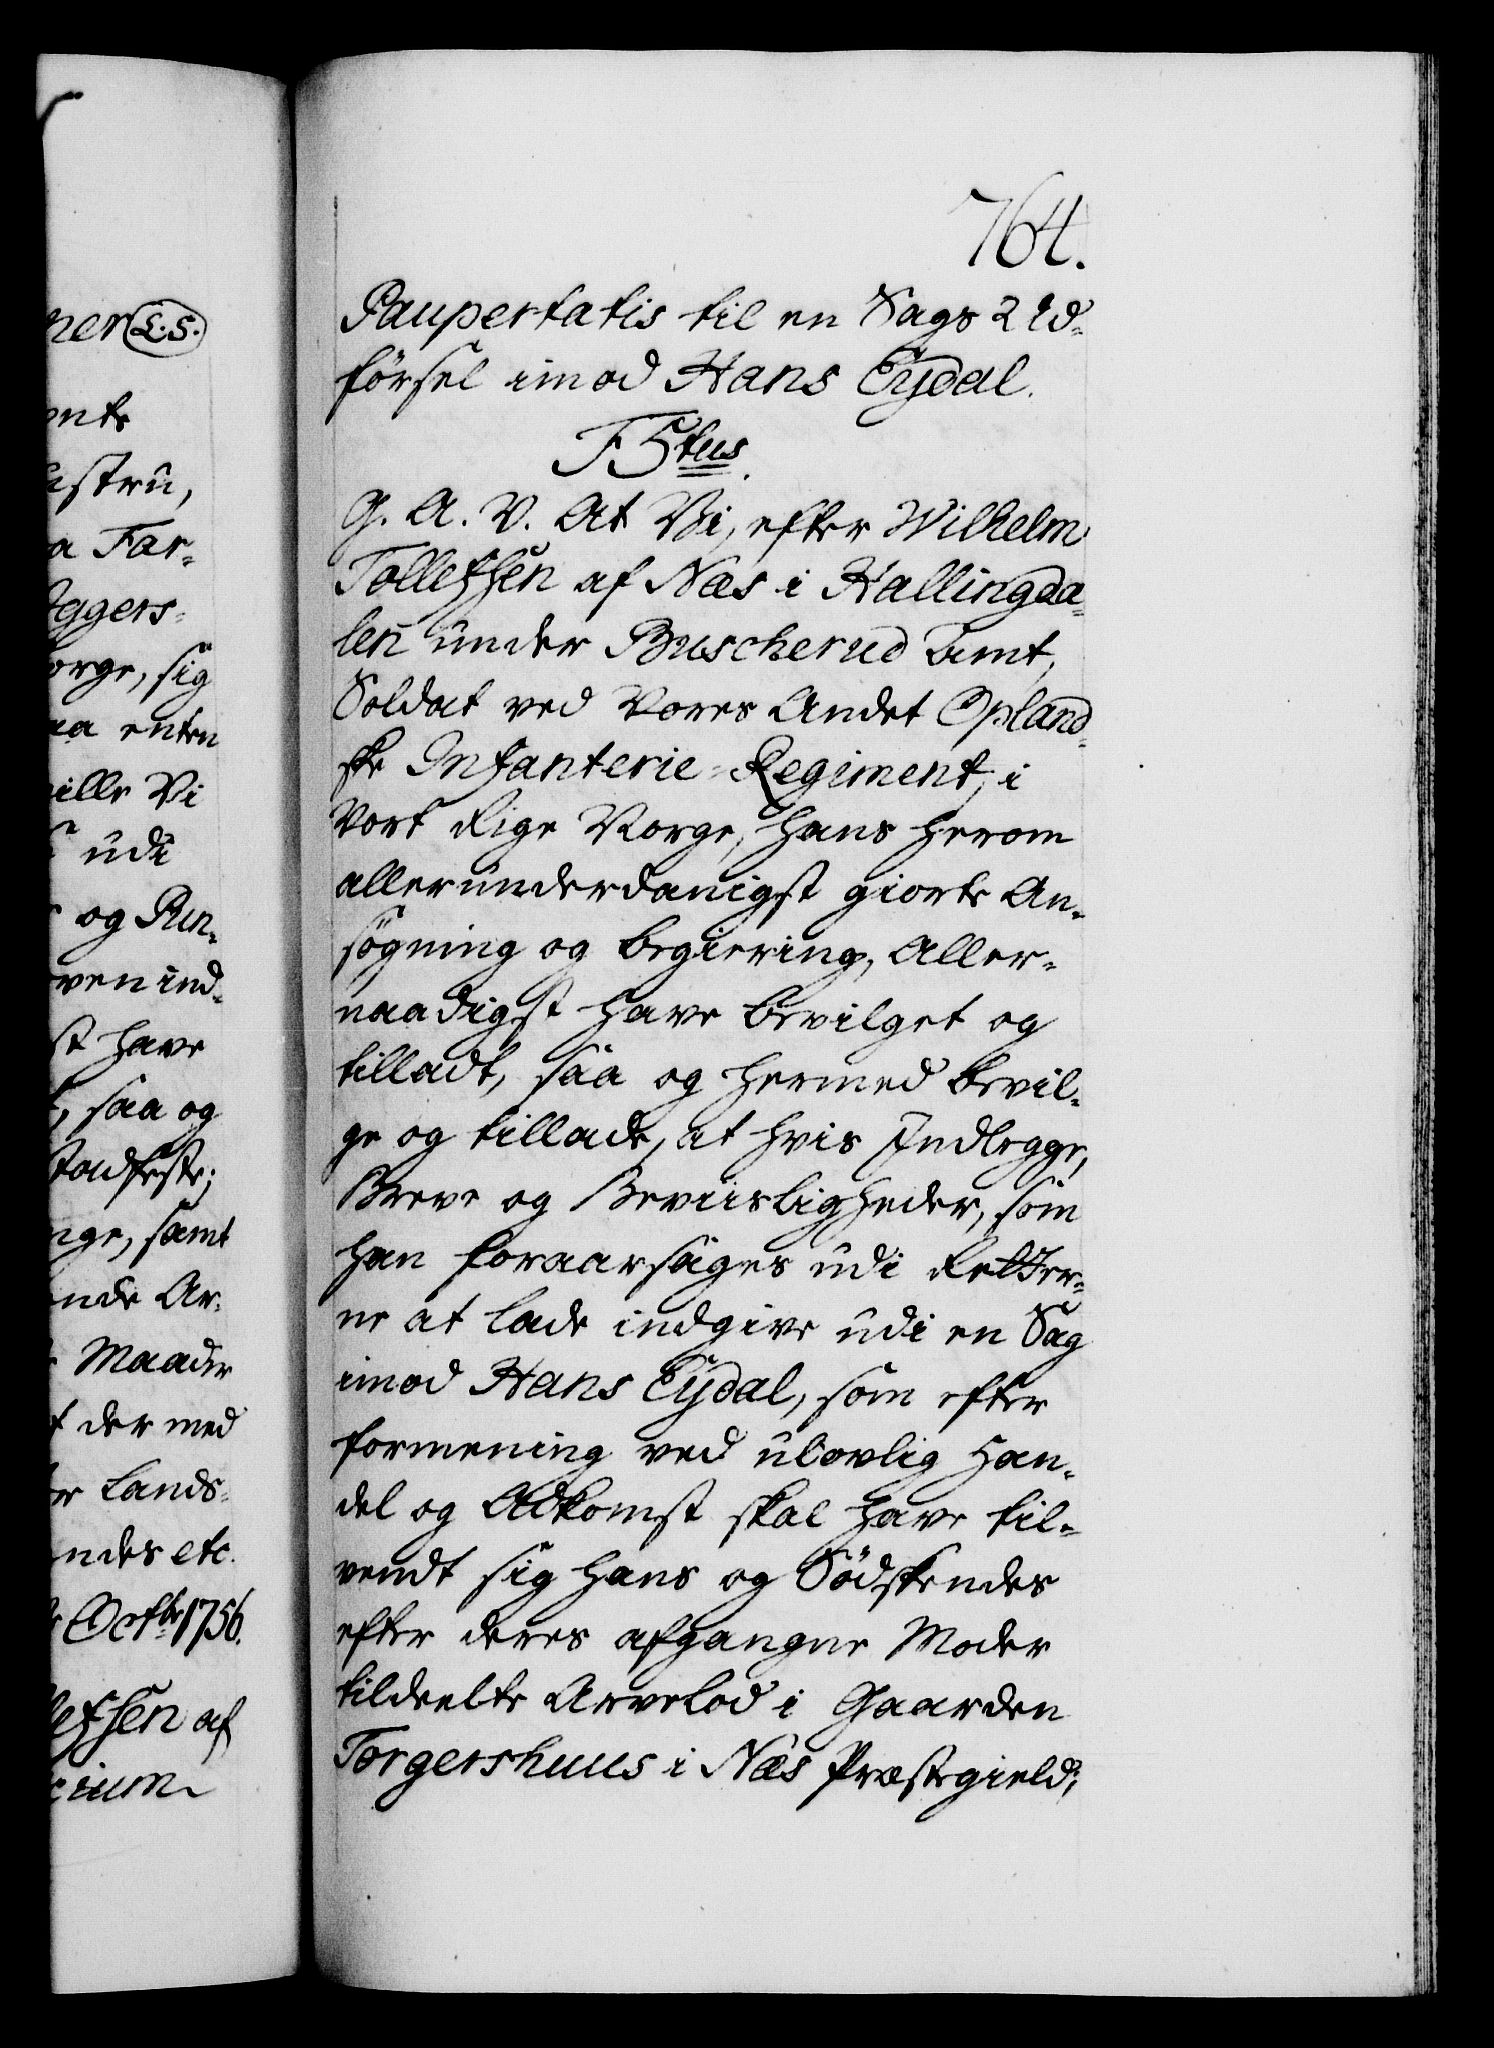 764.
Paupertatis til en Sags Ud-
førsel imod Hans Eydal.
F5tus.
G. A. V. At Vi, efter Wilhelm
Tollefsen af Næs i Hallingda-
len under Buscherud Amt,
Soldat ved Vores Andet Opland-
ske Infanterie-Regiment, i
Vort Rige Norge, hans herom
allerunderdanigst giorte An-
søgning og begiering, Aller-
naadigst have bevilget og
tilladt, saa og hermed bevil-
ge og tillade, at hvis Indlegge,
Breve og Beviisligheder, som
han foraarsages udi Retter-
ne at lade indgive udi en Sag
imod Hans Eydal, som efter
formening ved ulovlig Han-
del og Adkomst skal have til-
vendt sig hans og Sødskendes
efter deres afgangne Moder
tildeelte Arvelod i Gaarden
Torgershuus i Næs Præstegield;
ner L.S.
onte
ustru,
a Far-
Aggers-
orge, sig
aa enten
ville Vi
udi
og Pun-
oven ind-
st have
, saa og
stadfeste;
nge, samt
ende Ar-
Maader
t der med
er Lands-
endes etc.
Octbr 1756.
lefsen af
cium